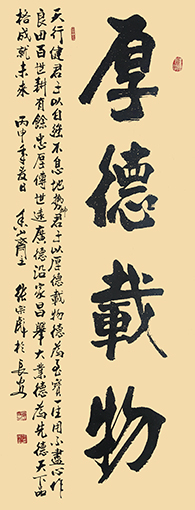 厚德載物
天行健君子以自強不息地勢坤君子以厚德載物德為至寶一生用不盡心作
良田百世耕有餘忠厚傳世遠廣德沿家昌舉大業德為先德天下品
格成就未来 丙申年夏日 於長安